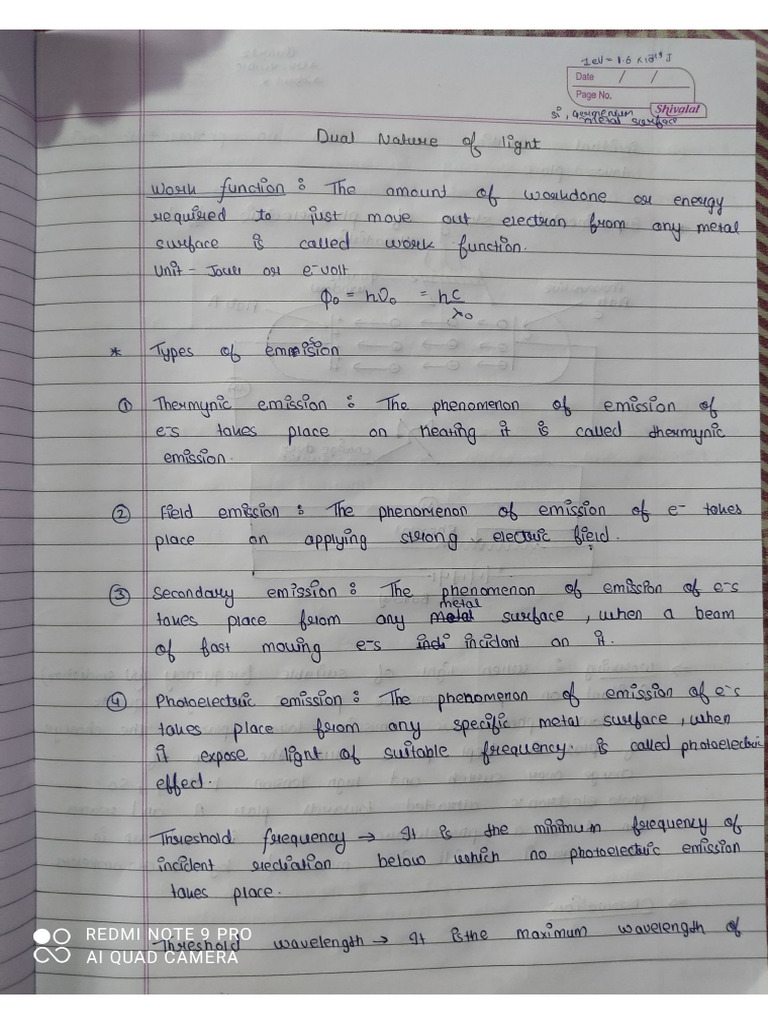 1eV = 1.6 × 10⁻¹⁹ J
Date / /
Page No.
Shivalal
si, Germentum
metal surface
Dual Nature of light
Work function : The amount of workdone or energy
required to just move out electron from any metal
surface is called work function.
Unit - Joule or e-volt
ϕ₀ = hν₀ = hc/λ₀
* Types of emmision
① Thermynic emission : The phenomenon of emission of
e-s takes place on heating it is called thermynic
emission.
② Field emission : The phenomenon of emission of e- takes
place on applying strong electric field.
③ Secondary emission : The phenomenon of emission of e-s
takes place from any metal surface, when a beam
of fast moving e-s incidant on it.
④ Photoelectric emission : The phenomenon of emission of e-s
takes place from any specific metal surface, when
it expose light of suitable frequency. is called photoelectric
effect.
Threshold frequency → It is the minimum frequency of
incident rediation below which no photoelectric emission
takes place.
Threshold wavelength → It is the maximum wavelength of
REDMI NOTE 9 PRO
AI QUAD CAMERA